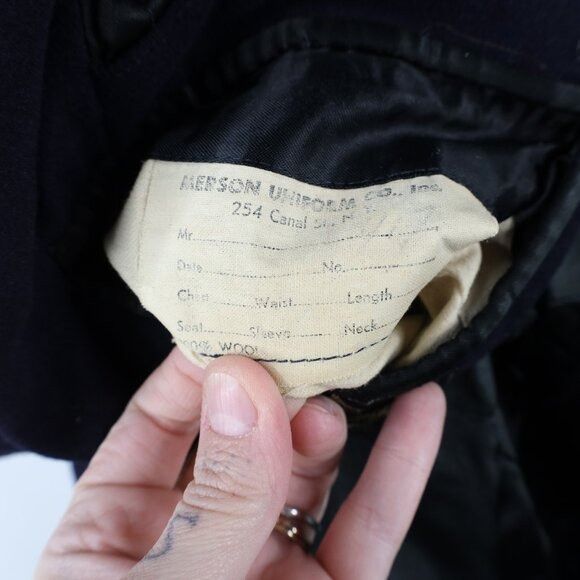 MERSON UNIFORM CO., Inc.
254 Canal St. N.
Mr.
Date No.
Chest Waist Length
Seat Sleeve Neck
100% WOOL